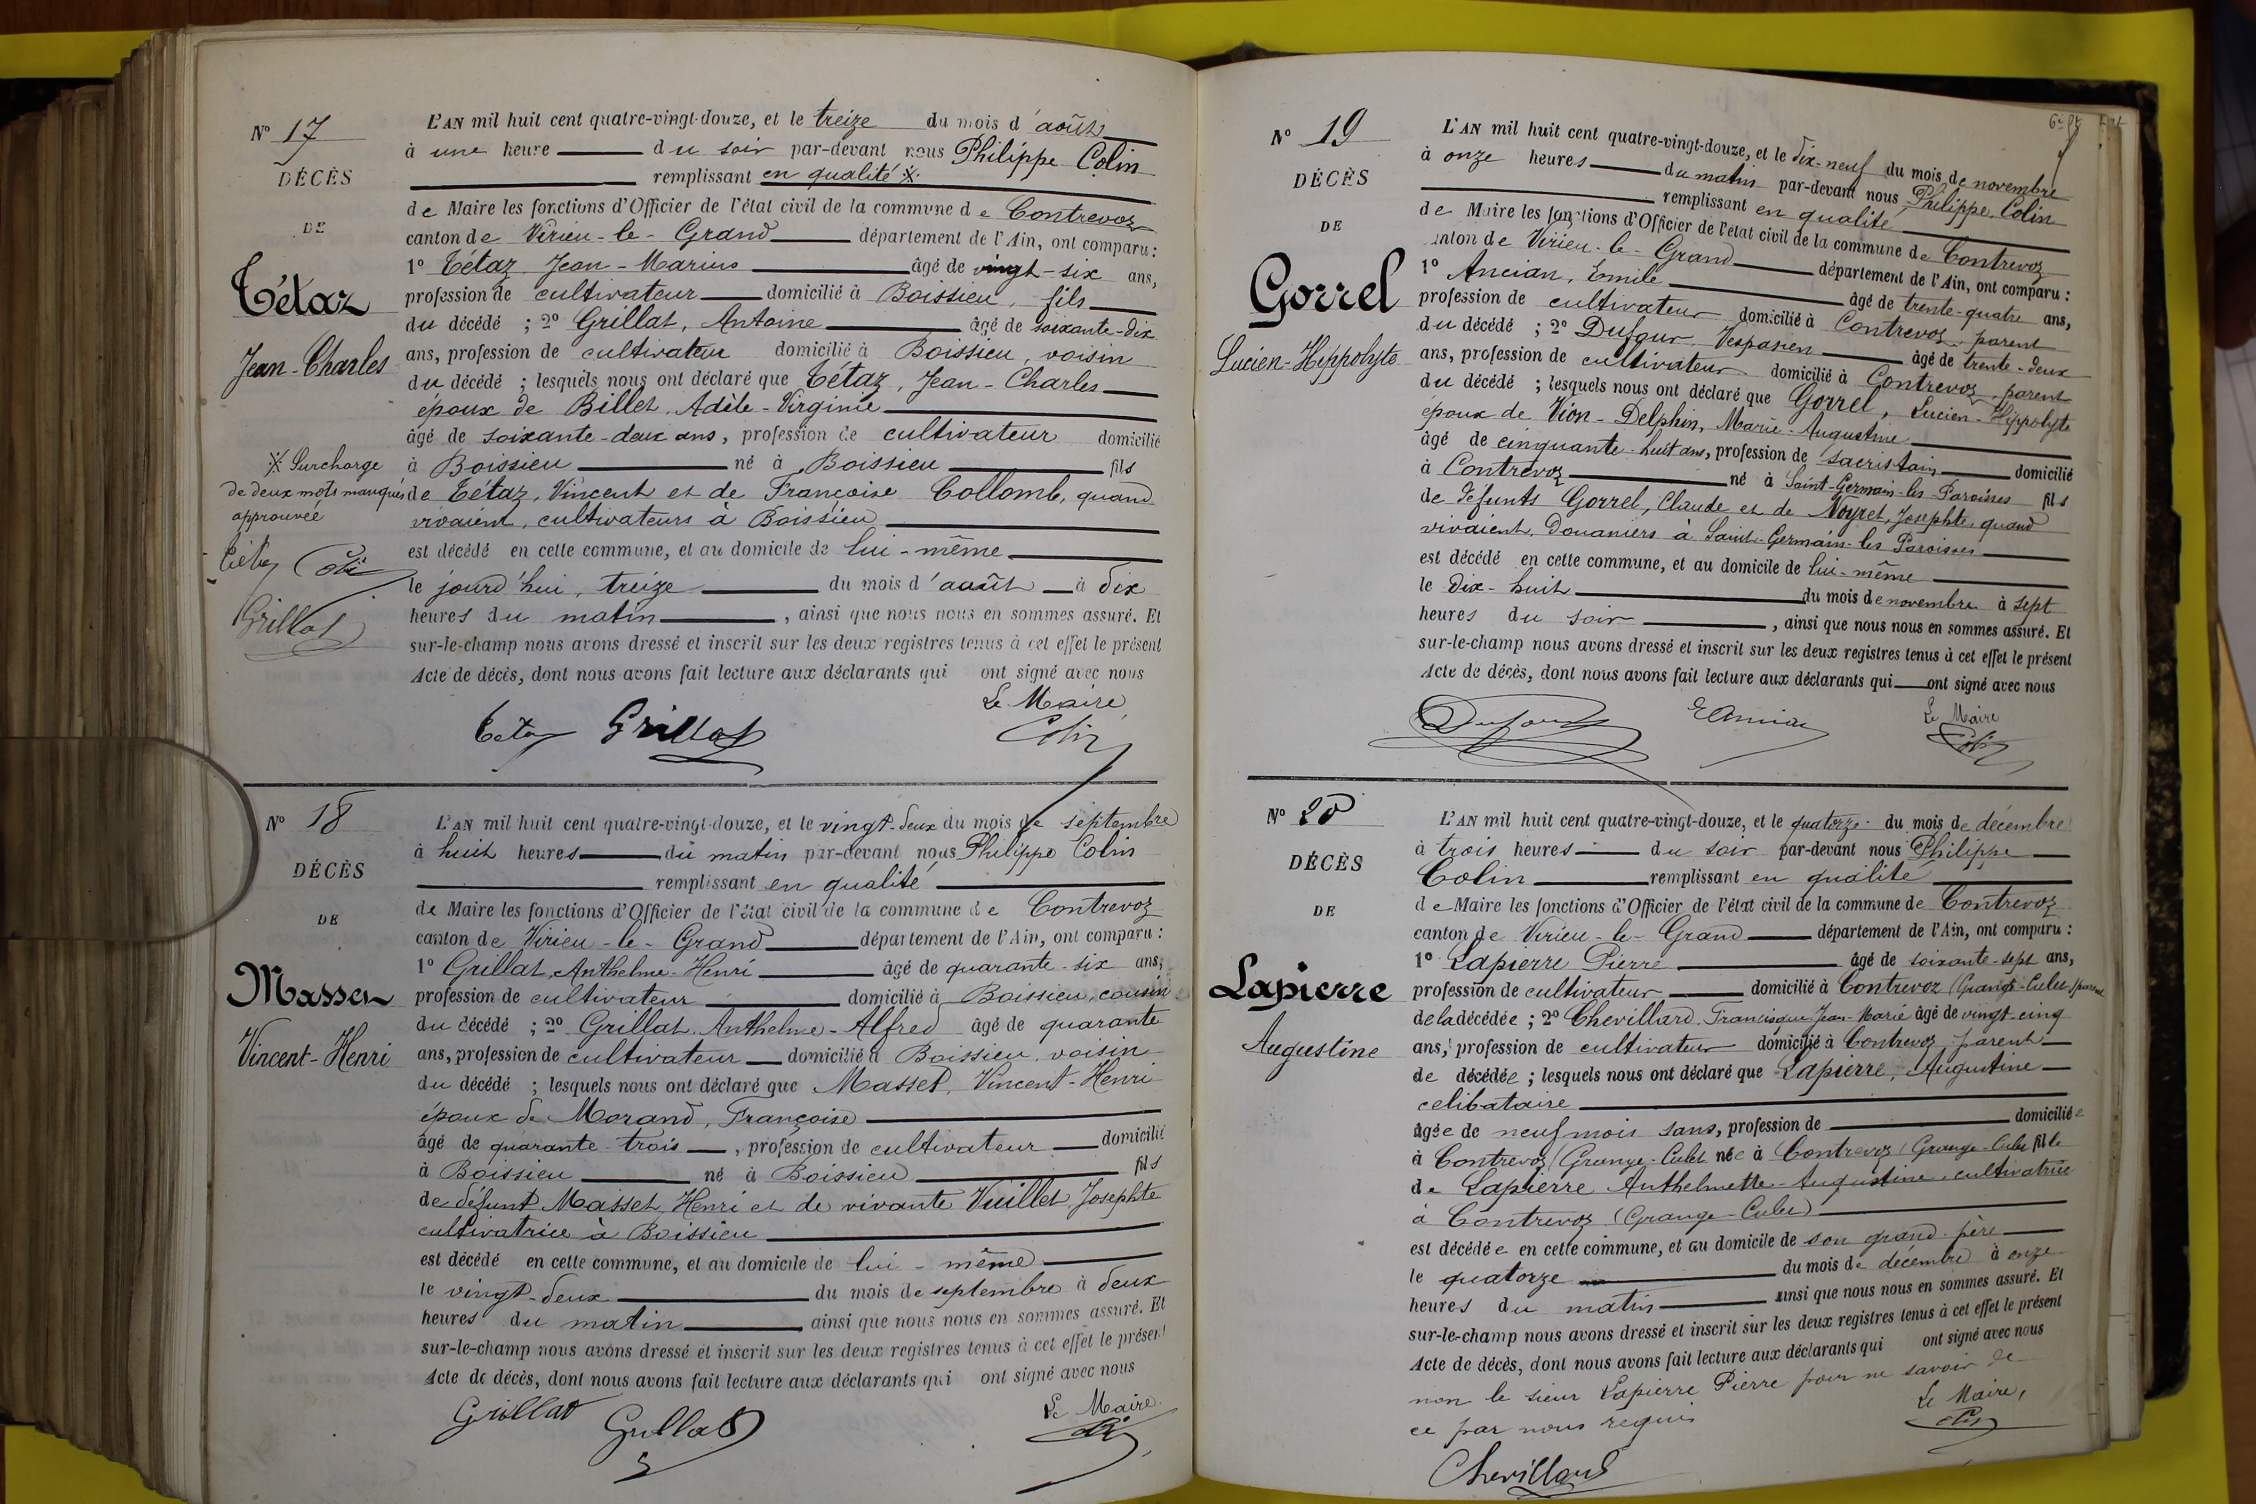 N° 17
DÉCÈS
DE
Tétaz
Jean-Charles
※ Surcharge
de deux mots manqués
approuvée
Tétaz Colin
Grillat
L'AN mil huit cent quatre-vingt-douze, et le treize du mois d'août
à une heure du soir par-devant nous Philippe Colin
remplissant en qualité ※
de Maire les fonctions d'Officier de l'état civil de la commune de Contrevoz
canton de Virieu-le-Grand département de l'Ain, ont comparu :
1° Tétaz Jean-Marius âgé de vingt-six ans,
profession de cultivateur domicilié à Boissieu, fils
du décédé ; 2° Grillat, Antoine âgé de soixante-dix
ans, profession de cultivateur domicilié à Boissieu, voisin
du décédé ; lesquels nous ont déclaré que Tétaz, Jean-Charles
époux de Billet, Adèle-Virginie
âgé de soixante-deux ans, profession de cultivateur domicilié
à Boissieu né à Boissieu fils
de Tétaz, Vincent et de Françoise Collomb, quand
vivaient, cultivateurs à Boissieu
est décédé en cette commune, et au domicile de lui-même
le jourd'hui, treize du mois d'août à dix
heures du matin, ainsi que nous nous en sommes assuré. Et
sur-le-champ nous avons dressé et inscrit sur les deux registres tenus à cet effet le présent
Acte de décès, dont nous avons fait lecture aux déclarants qui ont signé avec nous
Le Maire
Tétaz Grillat Colin
N° 18
DÉCÈS
DE
Masset
Vincent-Henri
L'AN mil huit cent quatre-vingt-douze, et le vingt-deux du mois de septembre
à huit heures du matin par-devant nous Philippe Colin
remplissant en qualité
de Maire les fonctions d'Officier de l'état civil de la commune de Contrevoz
canton de Virieu-le-Grand département de l'Ain, ont comparu :
1° Grillat, Anthelme-Henri âgé de quarante-six ans,
profession de cultivateur domicilié à Boissieu, cousin
du décédé ; 2° Grillat, Anthelme-Alfred âgé de quarante
ans, profession de cultivateur domicilié à Boissieu, voisin
du décédé ; lesquels nous ont déclaré que Masset, Vincent-Henri
époux de Morand, Françoise
âgé de quarante-trois, profession de cultivateur domicilié
à Boissieu né à Boissieu fils
de défunt Masset, Henri et de vivante Vuillet, Josephte
cultivatrice à Boissieu
est décédé en cette commune, et au domicile de lui-même
le vingt-deux du mois de septembre à deux
heures du matin ainsi que nous nous en sommes assuré. Et
sur-le-champ nous avons dressé et inscrit sur les deux registres tenus à cet effet le présent
Acte de décès, dont nous avons fait lecture aux déclarants qui ont signé avec nous
Le Maire
Grillat Grillat Colin
N° 19
DÉCÈS
DE
Gorrel
Lucien-Hippolyte
L'AN mil huit cent quatre-vingt-douze, et le dix-neuf du mois de novembre
à onze heures du matin par-devant nous Philippe Colin
remplissant en qualité
de Maire les fonctions d'Officier de l'état civil de la commune de Contrevoz
anton de Virieu-le-Grand département de l'Ain, ont comparu :
1° Ancian, Emile âgé de trente-quatre ans,
profession de cultivateur domicilié à Contrevoz, parent
du décédé ; 2° Dufour Vespasien âgé de trente-deux
ans, profession de cultivateur domicilié à Contrevoz, parent
du décédé ; lesquels nous ont déclaré que Gorrel, Lucien-Hippolyte
époux de Vion-Delphin, Marie-Augustine
âgé de cinquante-huit ans, profession de sacristain domicilié
à Contrevoz né à Saint-Germain-les-Paroisses fils
de défunts Gorrel, Claude et de Noyret, Josephte, quand
vivaient, Douaniers à Saint-Germain-les-Paroisses
est décédé en cette commune, et au domicile de lui-même
le dix-huit du mois de novembre à sept
heures du soir, ainsi que nous nous en sommes assuré. Et
sur-le-champ nous avons dressé et inscrit sur les deux registres tenus à cet effet le présent
Acte de décès, dont nous avons fait lecture aux déclarants qui ont signé avec nous
Dufour E Ancian Le Maire
Colin
N° 20
DÉCÈS
DE
Lapierre
Augustine
L'AN mil huit cent quatre-vingt-douze, et le quatorze du mois de décembre
à trois heures du soir par-devant nous Philippe
Colin remplissant en qualité
de Maire les fonctions d'Officier de l'état civil de la commune de Contrevoz
canton de Virieu-le-Grand département de l'Ain, ont comparu :
1° Lapierre Pierre âgé de soixante-sept ans,
profession de cultivateur domicilié à Contrevoz (Grange-Cules)
de la décédée ; 2° Chevillard, Francisque Jean-Marie âgé de vingt-cinq
ans, profession de cultivateur domicilié à Contrevoz parent
de décédée ; lesquels nous ont déclaré que Lapierre, Augustine
célibataire
âgée de neuf mois sans, profession de domiciliée
à Contrevoz (Grange-Cules née à Contrevoz (Grange-Cules fille
de Lapierre Anthelmette-Augustine, cultivatrice
à Contrevoz (Grange-Cules)
est décédée en cette commune, et au domicile de son grand-père
le quatorze du mois de décembre à onze
heures du matin ainsi que nous nous en sommes assuré. Et
sur-le-champ nous avons dressé et inscrit sur les deux registres tenus à cet effet le présent
Acte de décès, dont nous avons fait lecture aux déclarants qui ont signé avec nous
non le sieur Lapierre Pierre pour ne savoir de
ce par nous requis Le Maire,
Chevillard Colin